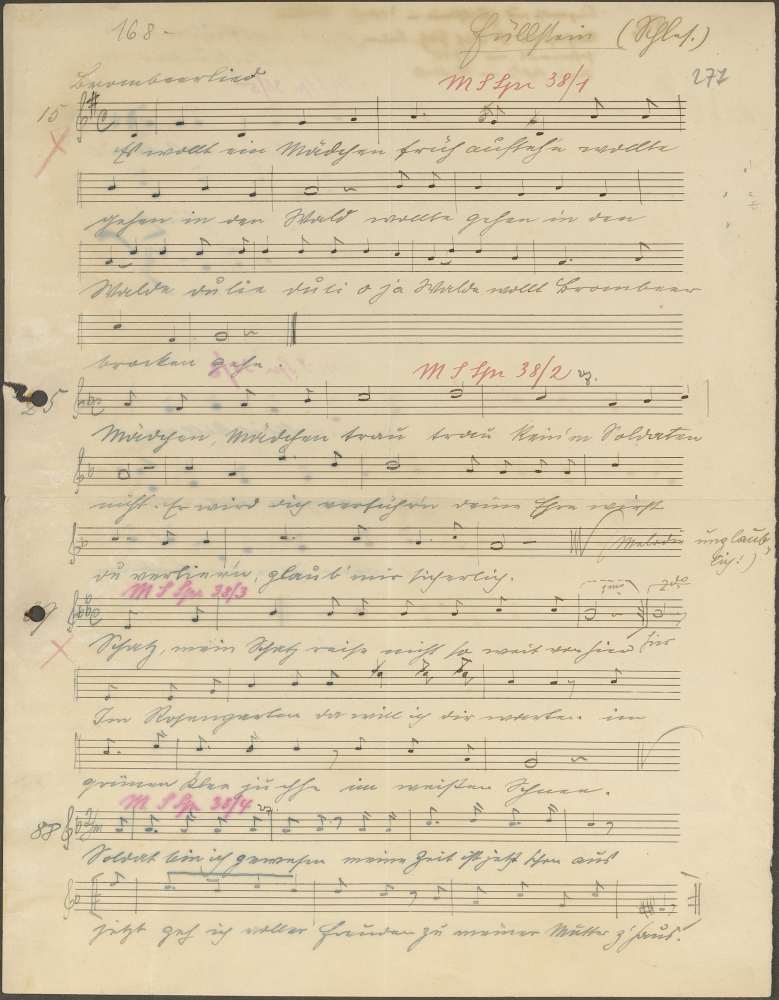 168-
Füllstein (Schles.)
Brombeerlied
M S Spr 38/1
271
15
Es wollt ein Mädchen früh aufsteh'n wollte
gehen in den Wald wollte gehen in den
Walde dulie duli o ja Walde wollt Brombeer
brocken gehn.
M S Spr 38/2
25
Mädchen, Mädchen trau trau kein'm Soldaten
nicht. Er wird dich verführ'n deine Ehre wirst
du verlier'n, glaub' mir sicherlich.
(Melodie unglaub
lich!)
M S Spr 38/3
Schatz, mein Schatz reise nicht so weit von hier hier
Im Rosengarten da will ich dir warten im
grünen Klee juchhe im weißen Schnee.
M S Spr 38/4
88
Soldat bin ich gewesen meine Zeit ist jetzt schon aus
jetzt geh ich voller Freuden zu meiner Mutter z'Haus.